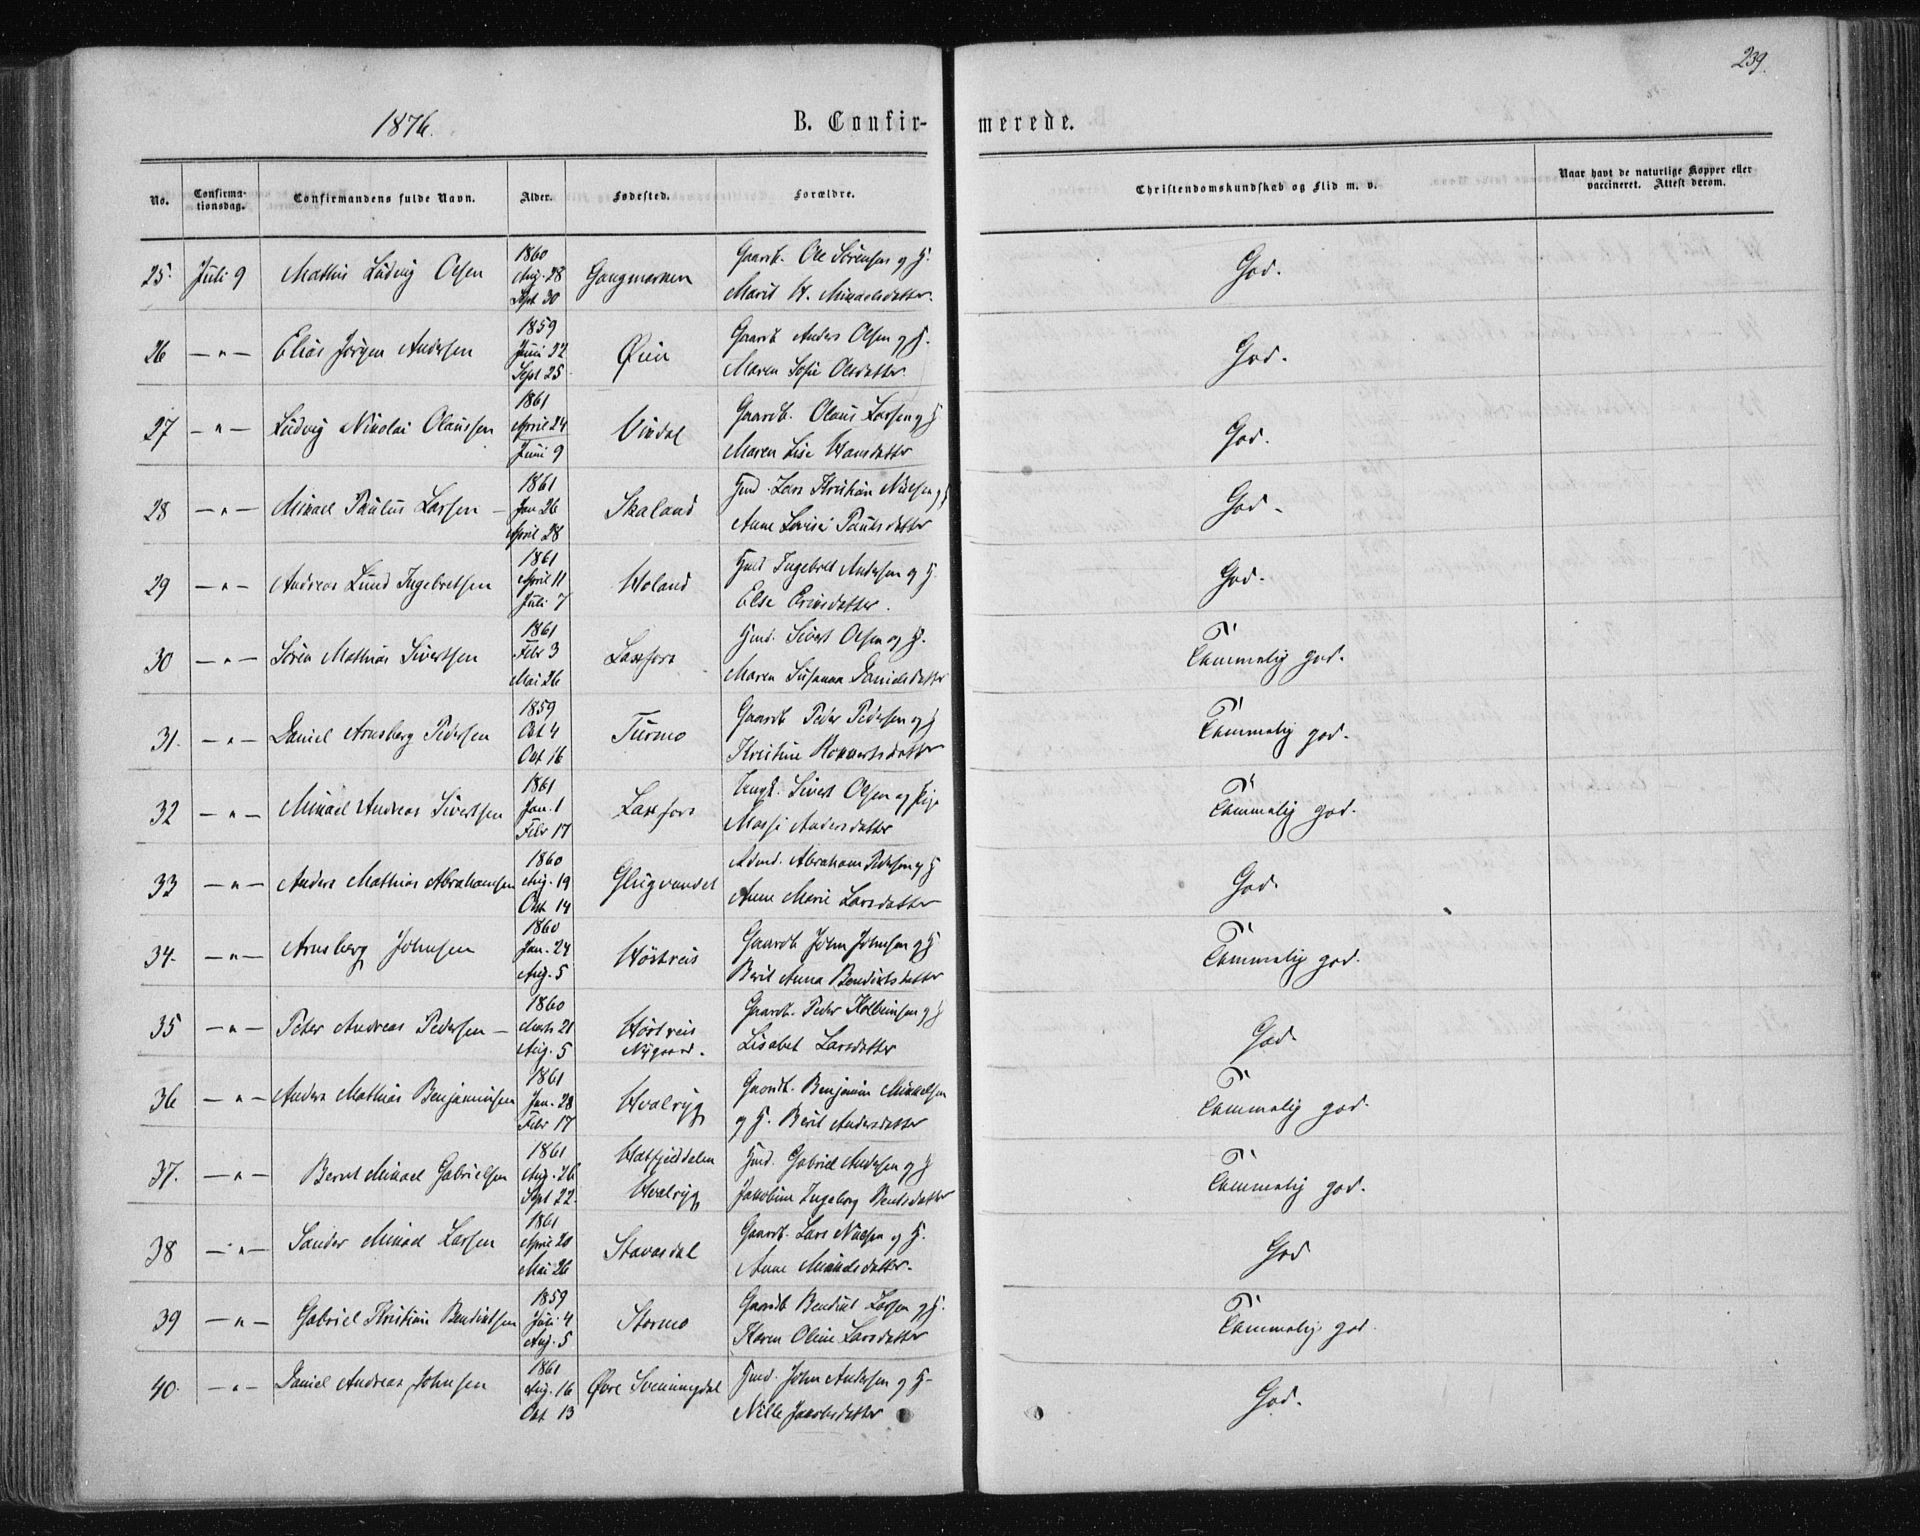 239.
1876.
B. Confirmerede.
No. Confirmationsdag. Confirmandens fulde Navn. Alder. Fødested. Forældre. Christendomskundskab og Flid m. v. Naar havt de naturlige Kopper eller vaccineret. Attest derom.
25. Juli 9 Mathis Ludvig Olsen 1860 Aug. 28 Sept 30 Gaardb. Ole Sørensen og H. Marit Mikaelsdatter. God.
26 — " — Elias Jørgen Andersen 1859 Juni 22 Sept 25 Øien Gaardb Anders Olsen og H. Maren Sofie Olsdatter God.
27 — " — Ludvig Nikolai Olaussen 1861 April 24 Juni 9 Vindal Gaardb. Olaus Larsen og H Maren Lise Hansdatter God.
28 — " — Mikael Paulus Larsen — 1861 Jan 26 April 28 Skaland Hmd. Lars Kristian Nielsen og H Anne Lovise Paulsdatter God.
29 — " — Andreas Lund Ingebretsen 1861 April 11 Juli 7 Holand Hmd Ingebret Andersen og H. Else Eriksdatter. God.
30 — " — Søren Mathias Sivertsen 1861 Febr 3 Mai 26 Laxfors Hmd. Sivert Olsen og H. Maren Susanna Danielsdatter Temmelig god.
31. — " — Daniel Arnsberg Pedersen 1859 Oct 4 Oct 16 Turmo Gaardb Peder Pedersen og H Kristine Datter Temmelig god.
32 — " — Mikael Andreas Sivertsen 1861 Jan. 1 Febr 17 Laxfors Ungk. Sivert Olsen og Pige Andersdatter Temmelig god.
33 — " — Anders Mathias Abrahamsen 1860 Aug. 19 Oct 14 Glugvandet Abraham Pedersen og H Anne Marie Larsdatter God.
34. — " — Arnsberg Johnsen 1860 Jan. 24 Aug. 5 Hostreis Gaardb. John Johnsen og H Beret Anna Bendiktsdatter Temmelig god.
35 — " — Peter Andreas Pedersen — 1860 Marts 21 Aug. 5 Hostreis Nygaard. Gaardb. Peder Kolbeinsen og H Lisabet Larsdatter God.
36 — " — Anders Mathias Benjaminsen 1861 Jan. 28 Febr 17 Hvalryg Gaardb. Benjamin Mikkelsen og H. Beret Andersdatter Temmelig god.
37. — " — Bernt Mikael Gabrielsen 1861 Aug. 26 Sept 22. Hatfjelddalen Hvalryg Hmd. Gabriel Andersen og H Jakobine Ingeborg Bentsdatter Temmelig god.
38 — " — Sander Mikael Larsen 1861 April 20 Mai 26 Stavasdal Gaardb. Lars Nielsen og H. Anne Mikkelsdatter. God
39 — " — Gabriel Kristian Bendiktsen 1859 Juli 4 Aug. 5 Stormo Gaardb Bendikt Larsen og H. Karen Oline Larsdatter Temmelig god.
40. — " — Daniel Andreas Johnsen 1861 Aug. 16 Oct. 13 Øvre Svenningdal Hmd. John Andersen og H. Nille Jakobsdatter God.